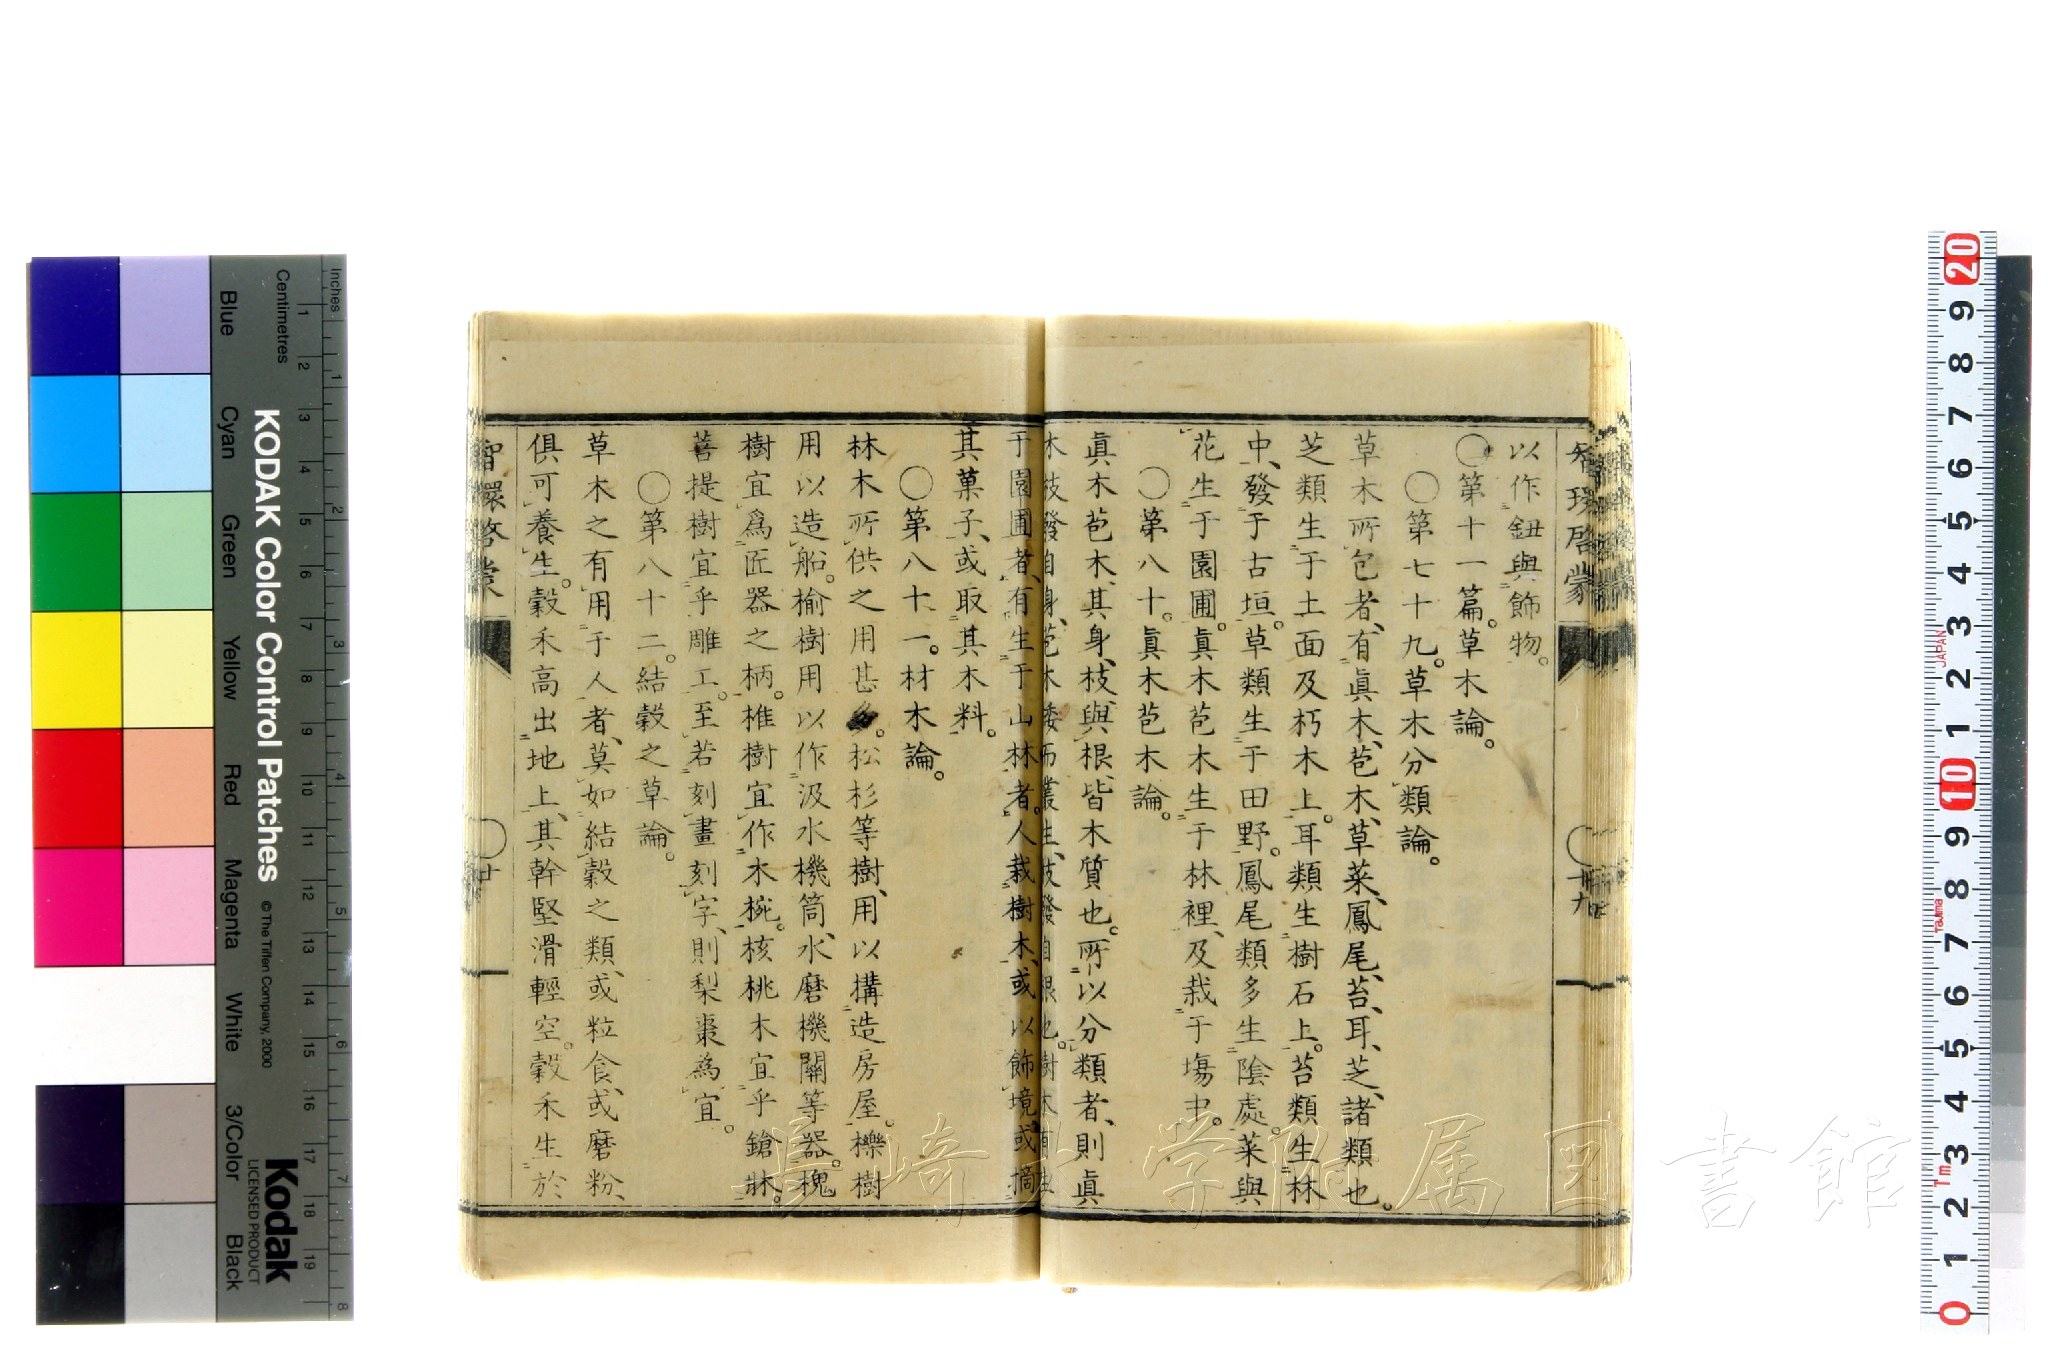 智環啓蒙
十九
以作鈕與飾物。
〇第十一篇。草木論。
〇第七十九。草木分類論。
草木所包者、有眞木、苞木、草菜、鳳尾、苔、耳、芝、諸類也。
芝類生于土面及朽木上。耳類生樹石上。苔類生林
中、發于古垣。草類生于田野。鳳尾類多生陰處。菜與
花生于園圃。眞木苞木生于林裡、及栽于塲中。
〇第八十。眞木苞木論。
眞木苞木、其身、枝、與根、皆木質也。所以分類者、則眞
木枝發自身、苞木矮而叢生、枝發自根也。樹木有生
于園圃者、有生于山林者。人栽樹木、或以飾境、或摘
其菓子、或取其木料。
〇第八十一。材木論。
林木所供之用甚多。松杉等樹、用以構造房屋。櫟樹
用以造船。榆樹用以作汲水機筒、水磨機關等器。槐
樹宜爲匠器之柄。椎樹宜作木椀。核桃木宜乎鎗牀。
菩提樹宜乎雕工。至若刻畫刻字、則梨棗爲宜。
〇第八十二。結穀之草論。
草木之有用于人者、莫如結穀之類、或粒食、或磨粉、
俱可養生。穀禾高出地上、其幹堅滑輕空。穀禾生於
智環啓蒙
廿
長崎大学附属図書館
KODAK Color Control Patches
© The Tiffen Company, 2000
Kodak
LICENSED PRODUCT
Inches
Centimetres
Blue
Cyan
Green
Yellow
Red
Magenta
White
3/Color
Black
1 2 3 4 5 6 7 8
1 2 3 4 5 6 7 8 9 10 11 12 13 14 15 16 17 18 19
20 9 8 7 6 5 4 3 2 1 10 9 8 7 6 5 4 3 2 1 0
JAPAN
Tajima
Tm